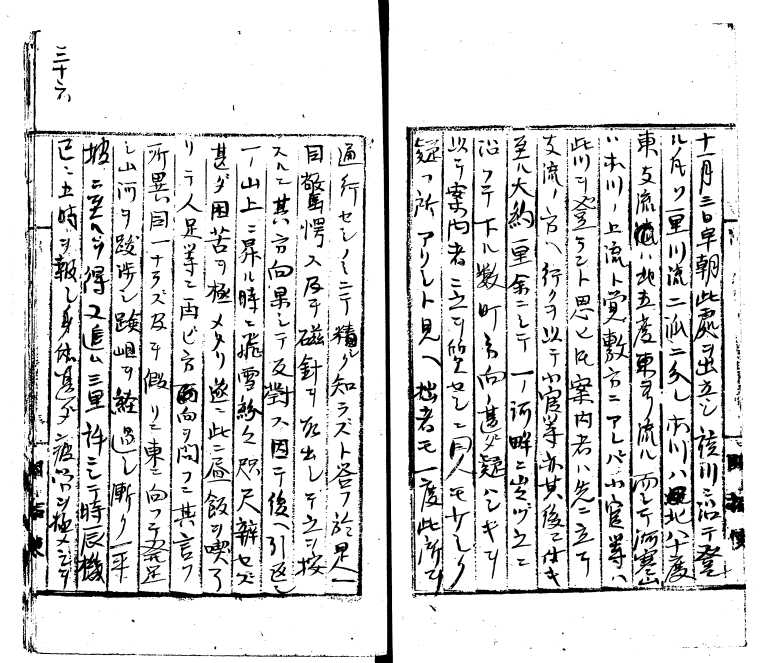 十一月三日早朝此處ヲ出立シ該川ニ沿テ登
ル凡ソ一里川流二派ニ分レ本川ハ北八十度
東支流ハ北五度東ヨリ流ル而シテ河寒山
ハ本川ノ上流ト覚敷方ニアレバ小官等ハ
此川ヲ登ラント思ヒ氏案内者ハ先ニ立テ
支流ノ方ヘ行クヲ以テ小官等亦其後ニ付キ
至ル大約一里余ニシテ一ノ河畔ニ出ヅ之ニ
沿フテ下ル数町方向ノ甚ダ疑ハシキヨリ
以テ案内者ニ立テ セシニ同人モ少シク
疑フ所アリシト見ヘ拙者モ一度此所ヲ
三十六
通行セシノミニテ精シク知ラズト答フ於是一
同驚愕ス及チ磁針ヲ出シテ之ヲ按
スルニ其方向果シテ反對ス因テ後ヘ引返シ
一ノ山上ニ昇ル時ニ飛雪 咫尺辨セズ
甚ダ困苦ヲ極メタリ遂ニ此ニ昼飯ヲ喫シ
リテ人足等ニ再ビ方向ヲ問フニ其言フ
所異同一ナラズ及チ假リニ東ニ向フテ発足
シ山河ヲ跋渉シ険岨ヲ経過シ漸ク一平
坡ニ至ルヲ得又進ム三里許ニシテ時辰機
已ニ五時ヲ報シ身体甚ダ疲労ヲ極メシヨリ